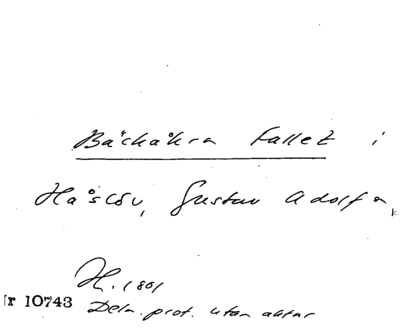 Bäckåkra Fallet i
Håslöv, Gustav Adolfs,
H. 1801
r 10743 Deln. prot. utan aktnr